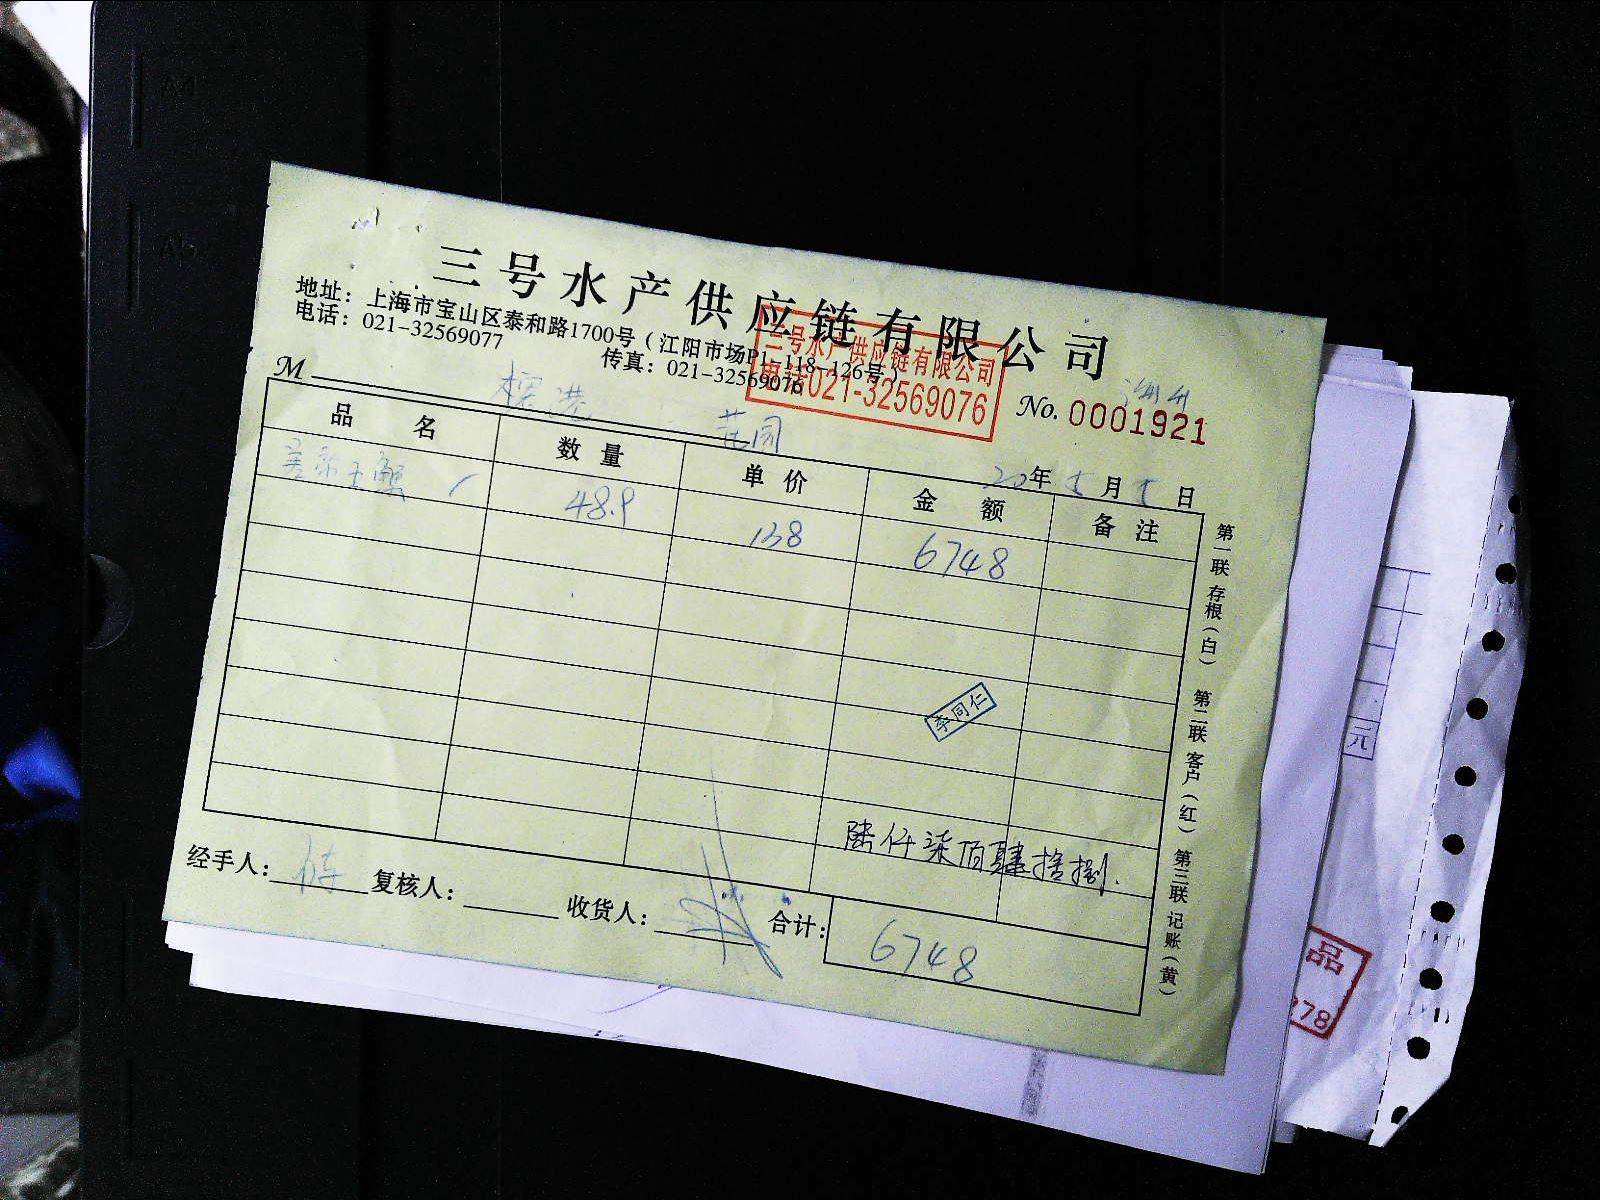 三号水产供应链有限公司
地址：上海市宝山区泰和路1700号（江阳市场P1-118-126号）
电话：021-32569077 传真：021-32569076
三号水产供应链有限公司
电话021-32569076
M
No. 0001921
20年5月5日
品名 数量 单价 金额 备注
48.9 138 6748
李同仁
陆仟柒佰肆拾捌
经手人： 复核人： 收货人： 合计： 6748
第一联 存根（白） 第二联 客户（红） 第三联 记账（黄）
元
品
278
A4